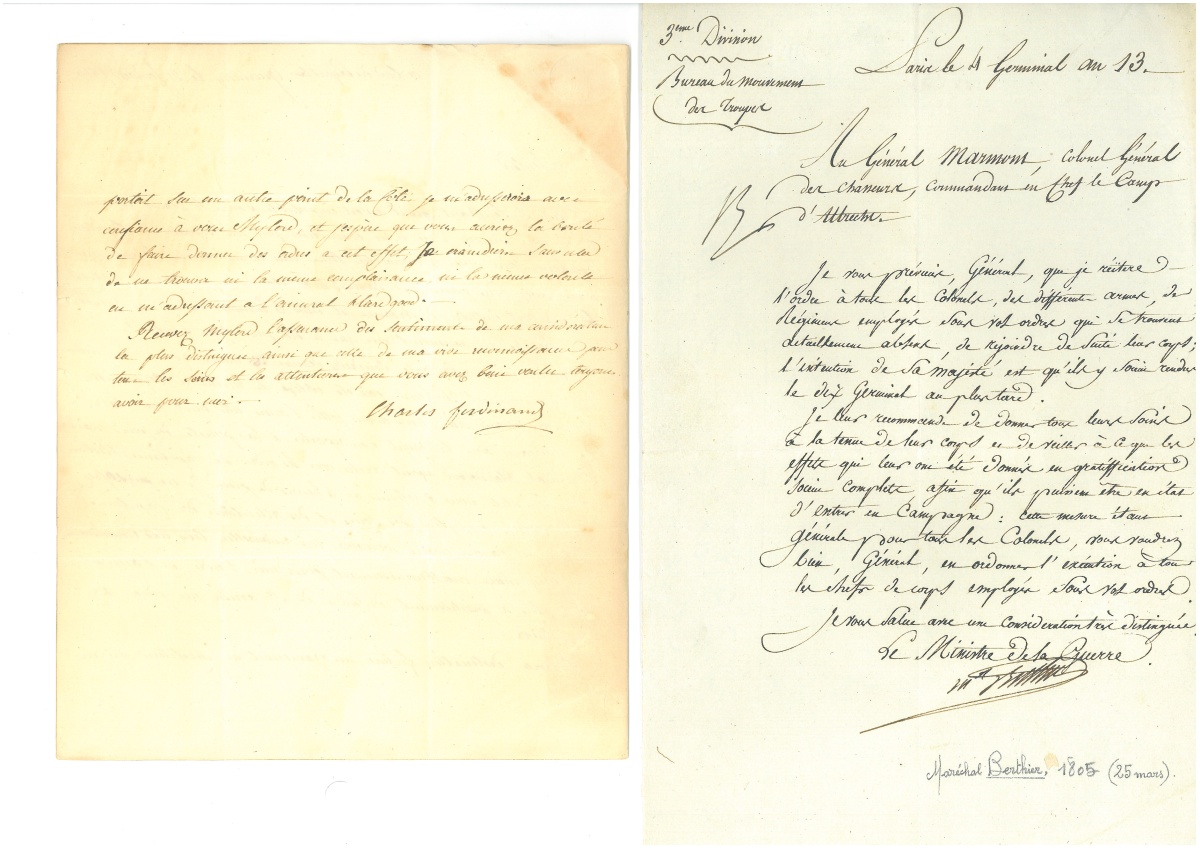 portait sur un autre point de la Côte, je m'adresserois avec
confiance à vous Mylord, et j'espère que vous auriez la bonté
de faire donner des ordres a cet effet. Je craindrois sans cela
de ne trouver ni la même complaisance ni la même volonté
en m'adressant a l'amiral
Recevez Mylord l'assurance des sentiments de ma considération
la plus distinguée ainsi que celle de ma vive reconnoissance pour
tous les soins et les attentions que vous avez bien voulu toujours
avoir pour moi.
Charles ferdinand
3.eme Division
Bureau du Mouvement
des Troupes
Paris le 4 Germinal an 13.
Au Général Marmont, Colonel Général
des Chasseurs, Commandant en Chef le Camp
d'Utrecht.
Je vous préviens, Général, que je réitere
l'ordre à tous les Colonels, des différentes armes, de
Régiment employés sous vos ordres qui se trouvent
actuellement absent, de rejoindre de suite leur corps;
l'intention de Sa majesté est qu'ils y soient rendus
le dix Germinal au plus tard.
Je leur recommande de donner tous leurs soins
à la tenue de leur corps et de veiller à ce que les
effets qui leur ont été donnés en gratiffication
soient complets, afin qu'ils puissent etre en état
d'entrer en Campagne : cette mesure étant
générale pour tous les Colonels, vous voudrez
bien, Général, en ordonner l'exécution à tous
les chefs de corps employés sous vos ordres.
Je vous salue avec une considération très distinguée.
Le Ministre de la Guerre.
Mal Berthier
Maréchal Berthier, 1805 (25 mars).